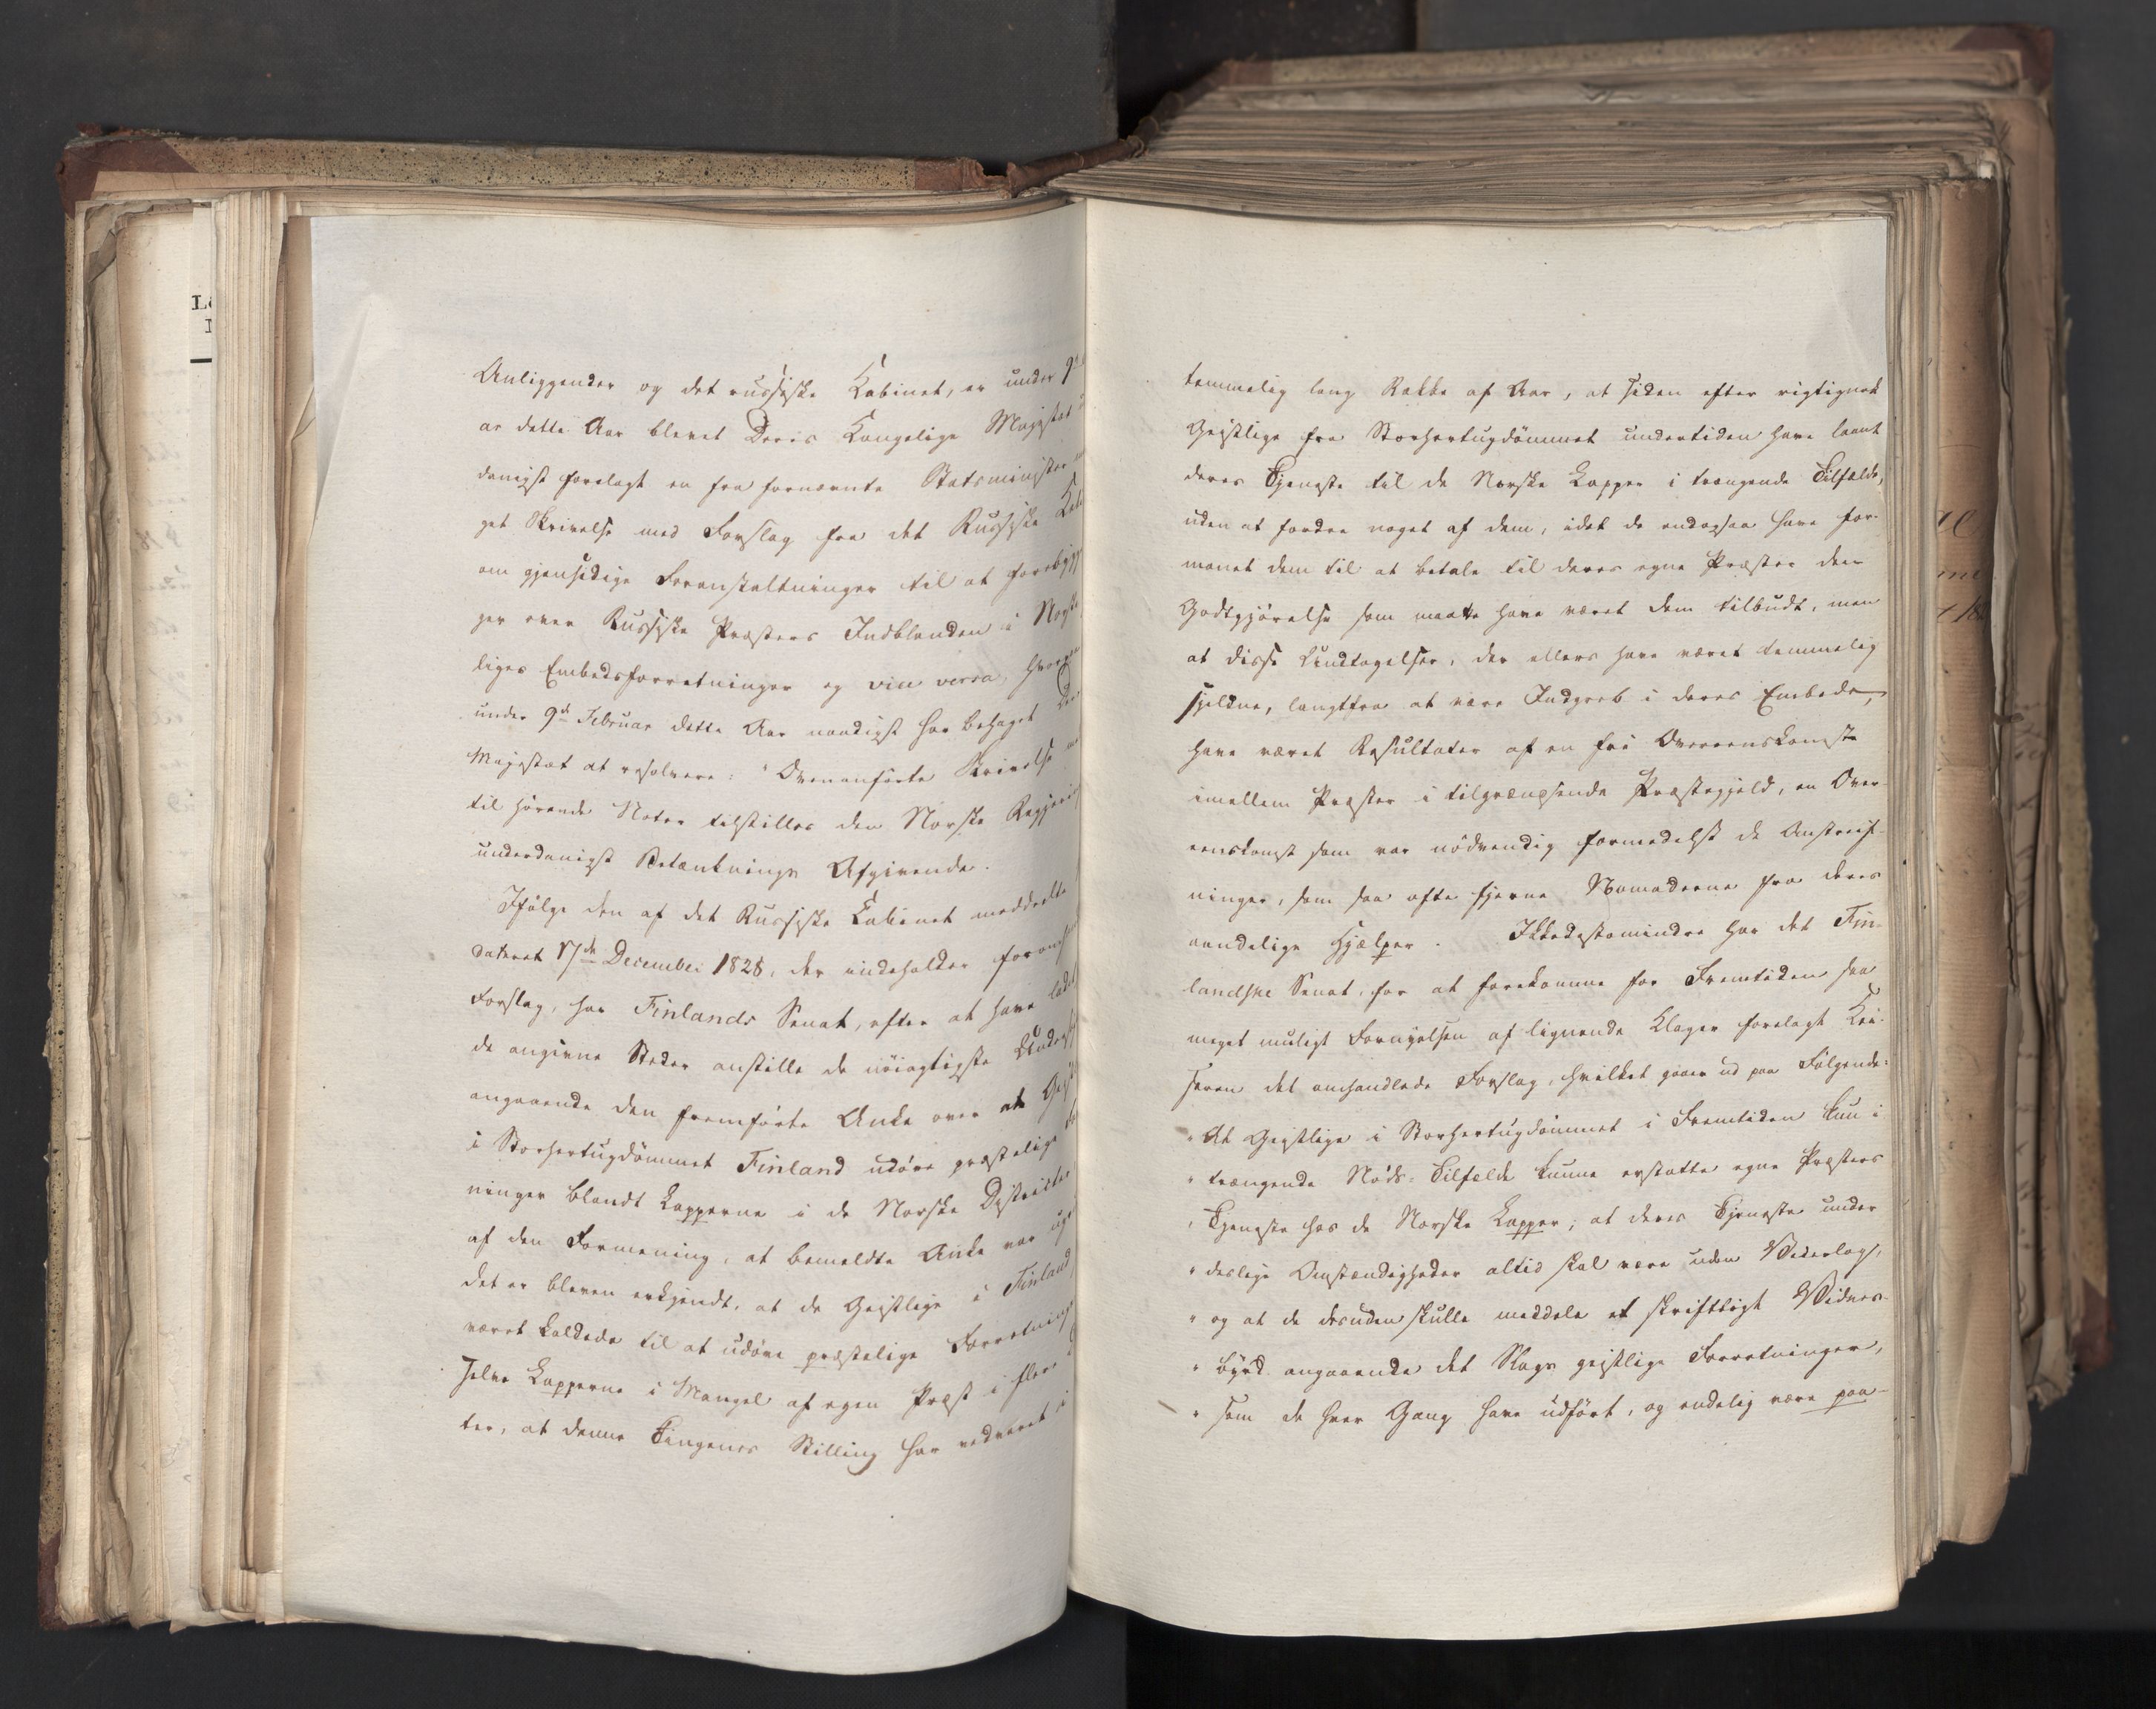 Anliggender og det russiske Kabinet, er under 9de
ar dette Aar blevet Deris Kongelige Majestæt
danigst forelagt en fra fornævnte Statsminister
get Skrivelse med Forslag fra det Russiske
om gjensidige Foranstaltninger til at forebygge
ger over Russiske Præsters Indblanden i Norske
liges Embedsforretninger og vice versa, hvorpaa
under 9de Februar dette Aar naadigst har behaget
Majestæt at resolvere: "Ovenanførte Skrivelse
til hørende Noter tilstilles den Norske Regjering
underdanigst Betænknings Afgivende.
Ifølge den af det Russiske Cabinet meddeelte
dateret 17de December 1828, der indeholder
Forslag, har Finlands Senat, efter at have ladet
de angivne Steder anstille de nöiagtigste
angaaende den fremförte Anke over at
i Storhertugdömmet Finland udöve præstelige
ninger blandt Lapperne i de Norske Districter
af den Formening, at bemeldte Anke var
det er bleven erkjendt, at de Geistlige i Finland
været kaldede til at udöve præstelige Forretninger
selve Lapperne i Mangel af egen Præst i flere
ter, at denne Tingenes Stilling har vedvaret i
temmelig lang Række af Aar, at siden efter rigtignok
Geistlige fra Storhertugdömmet undertiden have laant
deres Tjeneste til de Norske Lapper i trængende Tilfælde,
uden at fordre noget af dem, idet de endogsaa have for-
manet dem til at betale til deres egne Præster den
Godtgjörelse som maatte have været dem tilbudt, men
at disse Undtagelser, der ellers have været temmelig
sjeldne, langtfra at være Indgreb i deres Embede,
have været Resultater af en fri Overeenskomst
imellem Præster i tilgrændsende Præstegjeld, en Over-
eenskomst som var nödvendig formedelst de Omstreif-
ninger, som saa ofte fjerne Nomaderne fra deres
aandelige Hjælper. Ikkedestomindre har det Fin-
landske Senat, for at forekomme for Fremtiden saa
meget muligt Fornyelsen af lignende Klager forelagt Kei-
seren det omhandlede Forslag, hvilket gaaer ud paa Følgende:
"At Geistlige i Storhertugdömmet i Fremtiden kun i
" trængende Nöds-Tilfælde kunne erstatte egne Præsters
" Tjeneste hos de Norske Lapper; at deres Tjeneste under
" deslige Omstændigheder altid skal være uden Vederlag,
" og at de desuden skulle meddele et skriftligt Vidnes-
" byrd angaaende det Slags geistlige Forretninger,
" som de hver Gang have udfört, og endelig være paa-